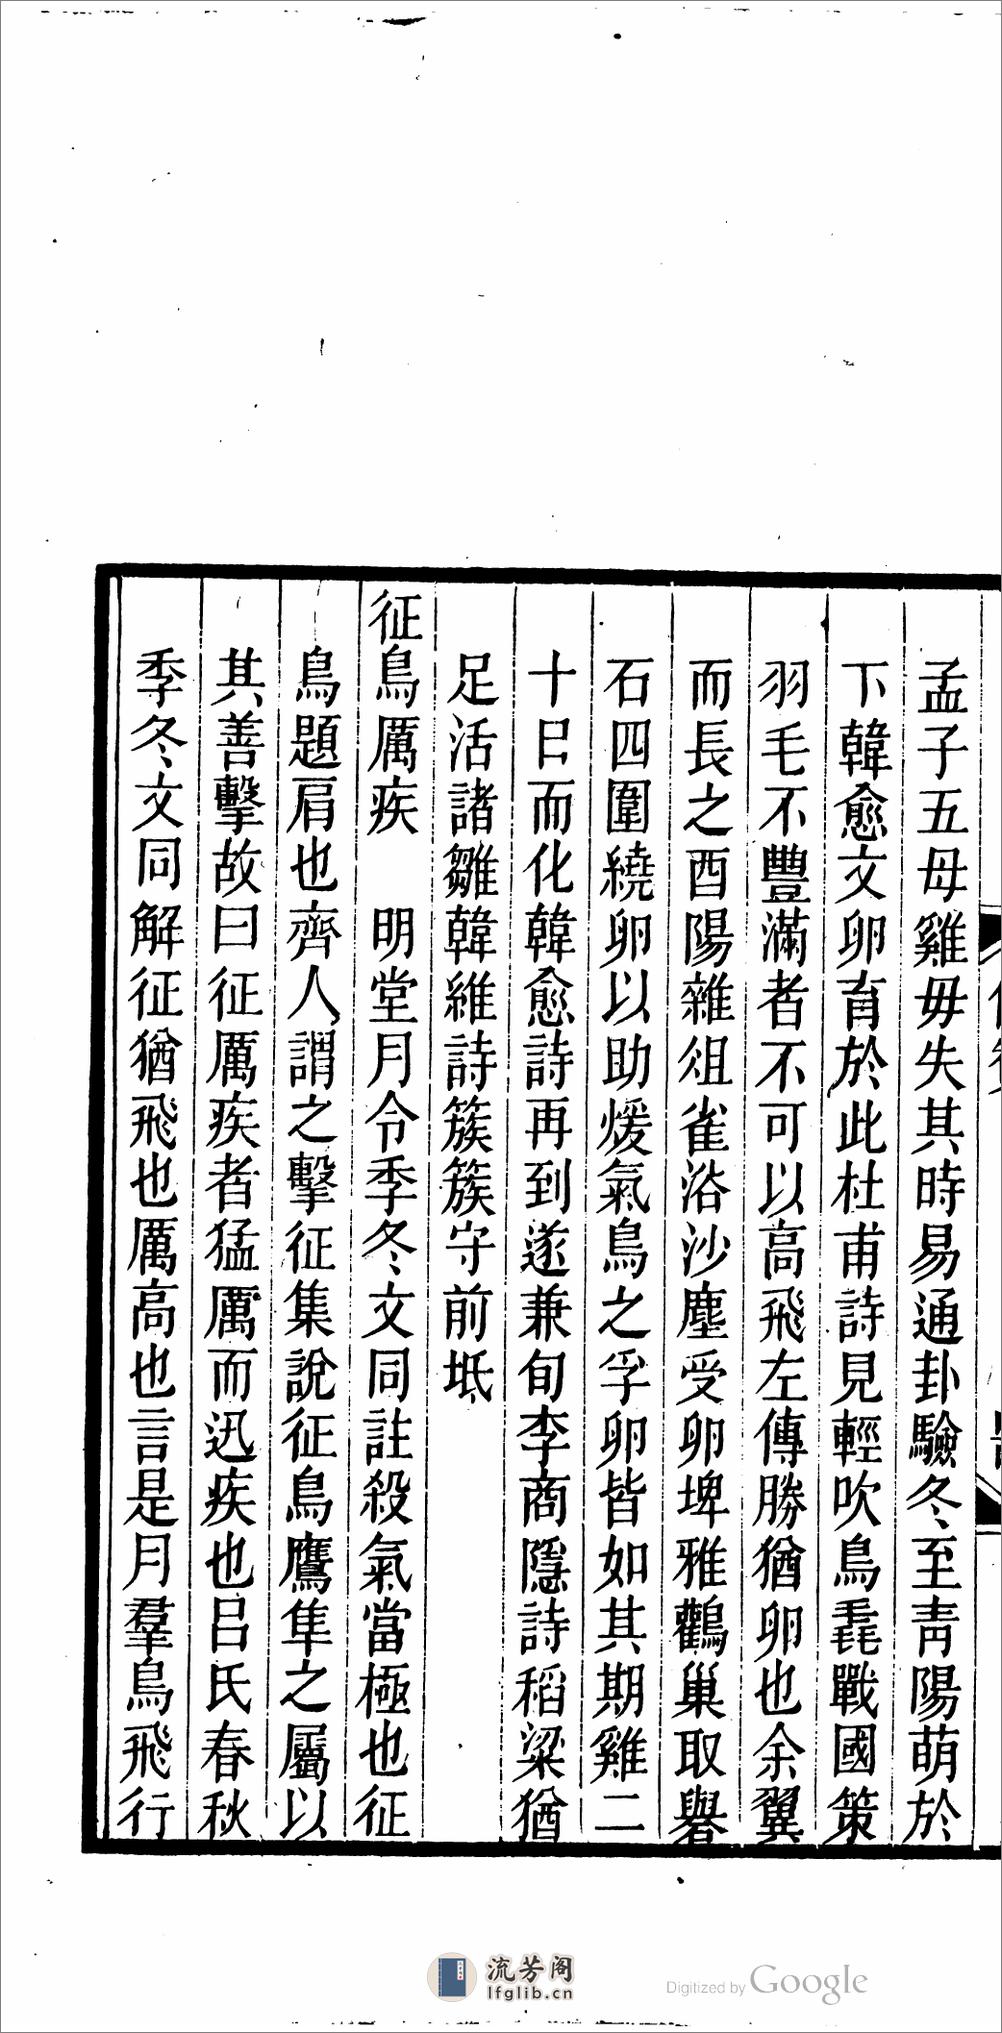 孟子五母雞毋失其時易通卦驗冬至青陽萌於
下韓愈文卵育於此杜甫詩見輕吹鳥毳戰國策
羽毛不豐滿者不可以高飛左傳勝猶卵也余翼
而長之酉陽雜俎雀浴沙塵受卵埤雅鸛巢取礜
石四圍繞卵以助煖氣鳥之孚卵皆如其期雞二
十日而化韓愈詩再到遂兼旬李商隱詩稻粱猶
足活諸雛韓維詩簇簇守前坻
征鳥厲疾　明堂月令季冬文同註殺氣當極也征
鳥題肩也齊人謂之擊征集說征鳥鷹隼之屬以
其善擊故曰征厲疾者猛厲而迅疾也呂氏春秋
季冬文同解征猶飛也厲高也言是月羣鳥飛行
流芳阁
lfglib.cn
Digitized by Google